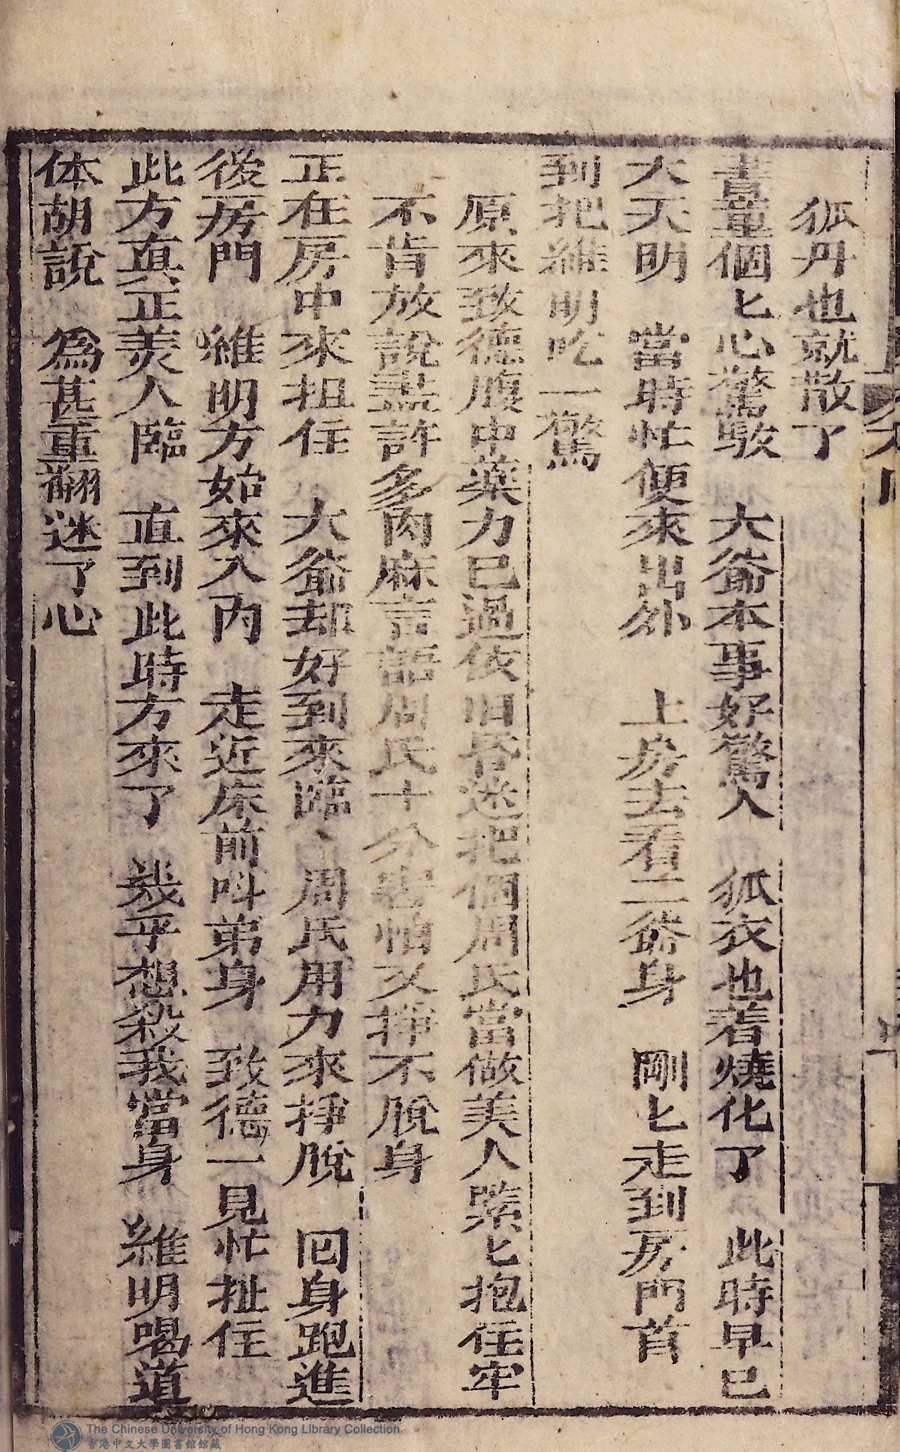 狐丹也就散了
書童個匕心驚駭　大爺本事好驚人　狐衣也着燒化了　此時早已
大天明　當時忙便來出外　上房去看二爺身　剛匕走到房門首
到把維明吃一驚
原來致德腹中藥力已過依旧昏迷把個周氏當做美人緊匕抱住牢
不肯放說盡許多肉麻言語周氏十分害怕又掙不脫身
正在房中來扭住　大爺却好到來臨　周氏用力來掙脫　囘身跑進
後房門　維明方始來入內　走近床前呌弟身　致德一見忙扯住
此方真正美人臨　直到此時方來了　幾乎想殺我當身　維明喝道
体胡說　為甚重翻迷了心
The Chinese University of Hong Kong Library Collection
香港中文大學圖書館館藏